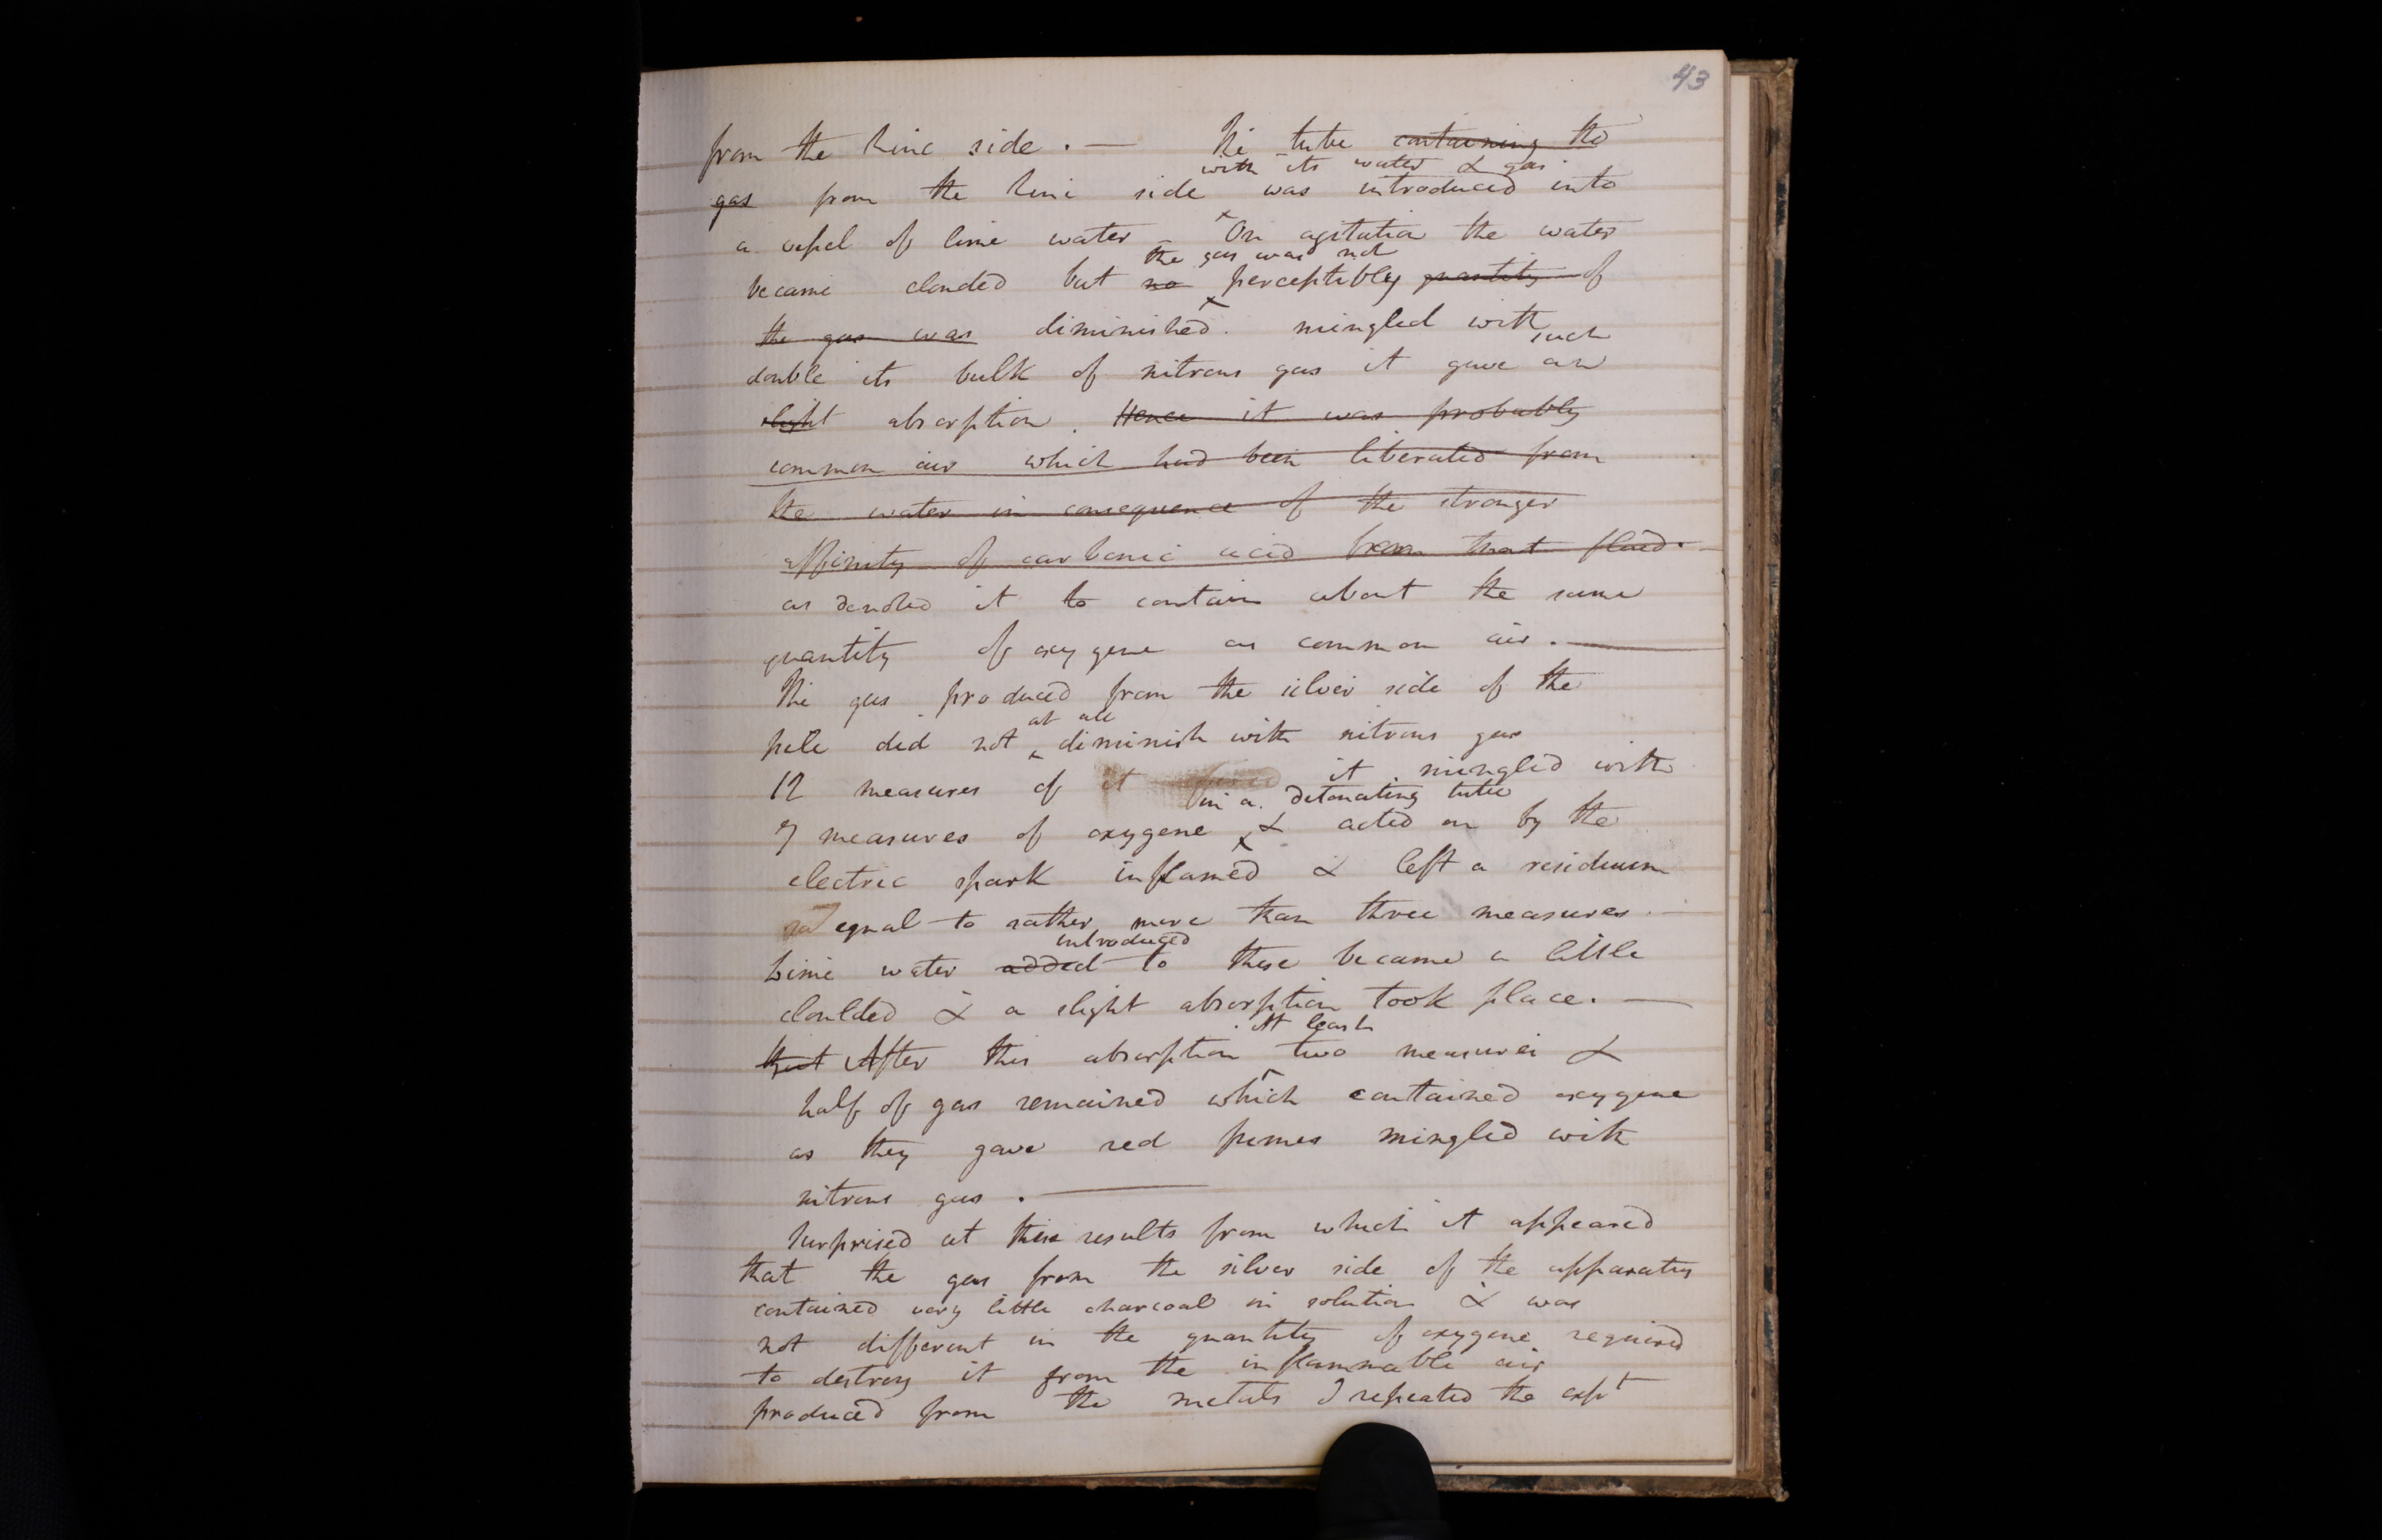 43
from the zinc side . — The tube containing the
with its water & gas
gas from the zinc side was introduced into
a vessel of lime water – On agitation the water
the gas was not
became clouded but no perceptibly quantity of
the gas was diminished. mingled with
such
double its bulk of nitrous gas it gave an
slight absorption . Hence it was probably
common air which had been liberated from
the water in consequence of the stronger
affinity of carbonic acid from that fluid. —
as denoted it to contain about the same
quantity of oxygene as common air . —
The gas produced from the silver side of the
at all
pile did not diminish with nitrous gas
12 measures of it it mingled with
in a detonating tube
7 measures of oxygene & acted on by the
electric spark inflamed & left a residuum
equal to rather more than three measures . —
introduced
Lime water added to these became a little
cloulded & a slight absorption took place. —
At least
that After this absorption two measures &
half of gas remained which contained oxygene
as they gave red fumes mingled with
nitrous gas . —
Surprised at these results from which it appeared
that the gas from the silver side of the apparatus
contained very little charcoal in solution & was
not different in the quantity of oxygene required
to destroy it from the inflammable air
produced from the metals I repeated the expt